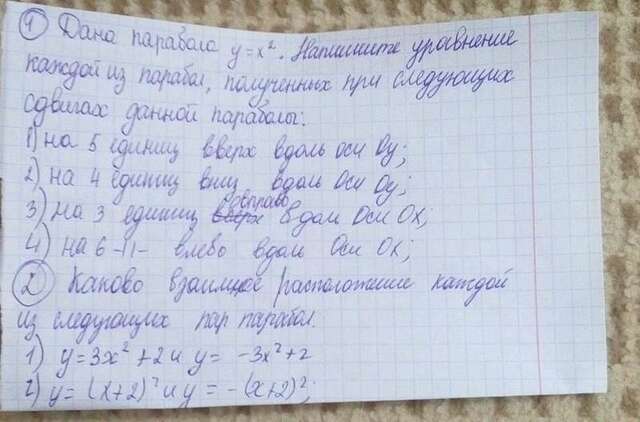 1 Дана парабола y=x². Напишите уравнение
каждой из парабол, полученных при следующих
сдвигах данной параболы:
1) на 5 единиц вверх вдоль оси Oy;
2) на 4 единиц вниз вдоль оси Oy;
3) на 3 единиц вправо вдоль оси Ox;
4) на 6 -11- влево вдоль оси Ox;
2 Каково взаимное расположение каждой
из следующих пар парабол.
1) y=3x²+2 и y= -3x²+2
2) y=(x+2)² и y= -(x+2)²;